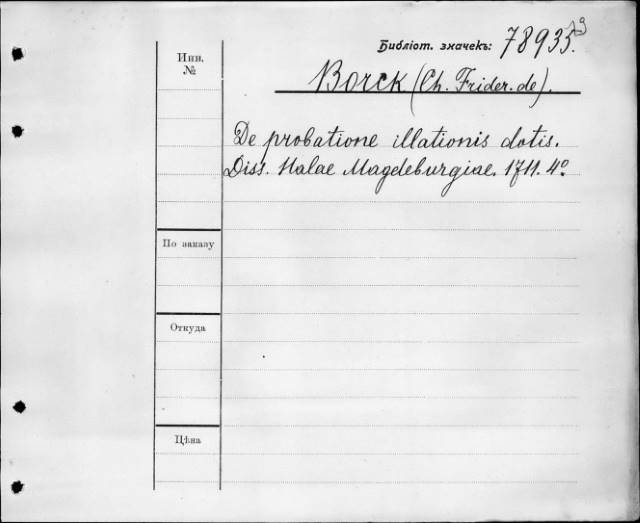 Библіот. значекъ: 78935.
Инв.
№
Borck (Ch. Frider. de).
De probatione illationis dotis.
Diss. Halae Magdeburgiae. 1711. 4º
По заказу
Откуда
Цѣна